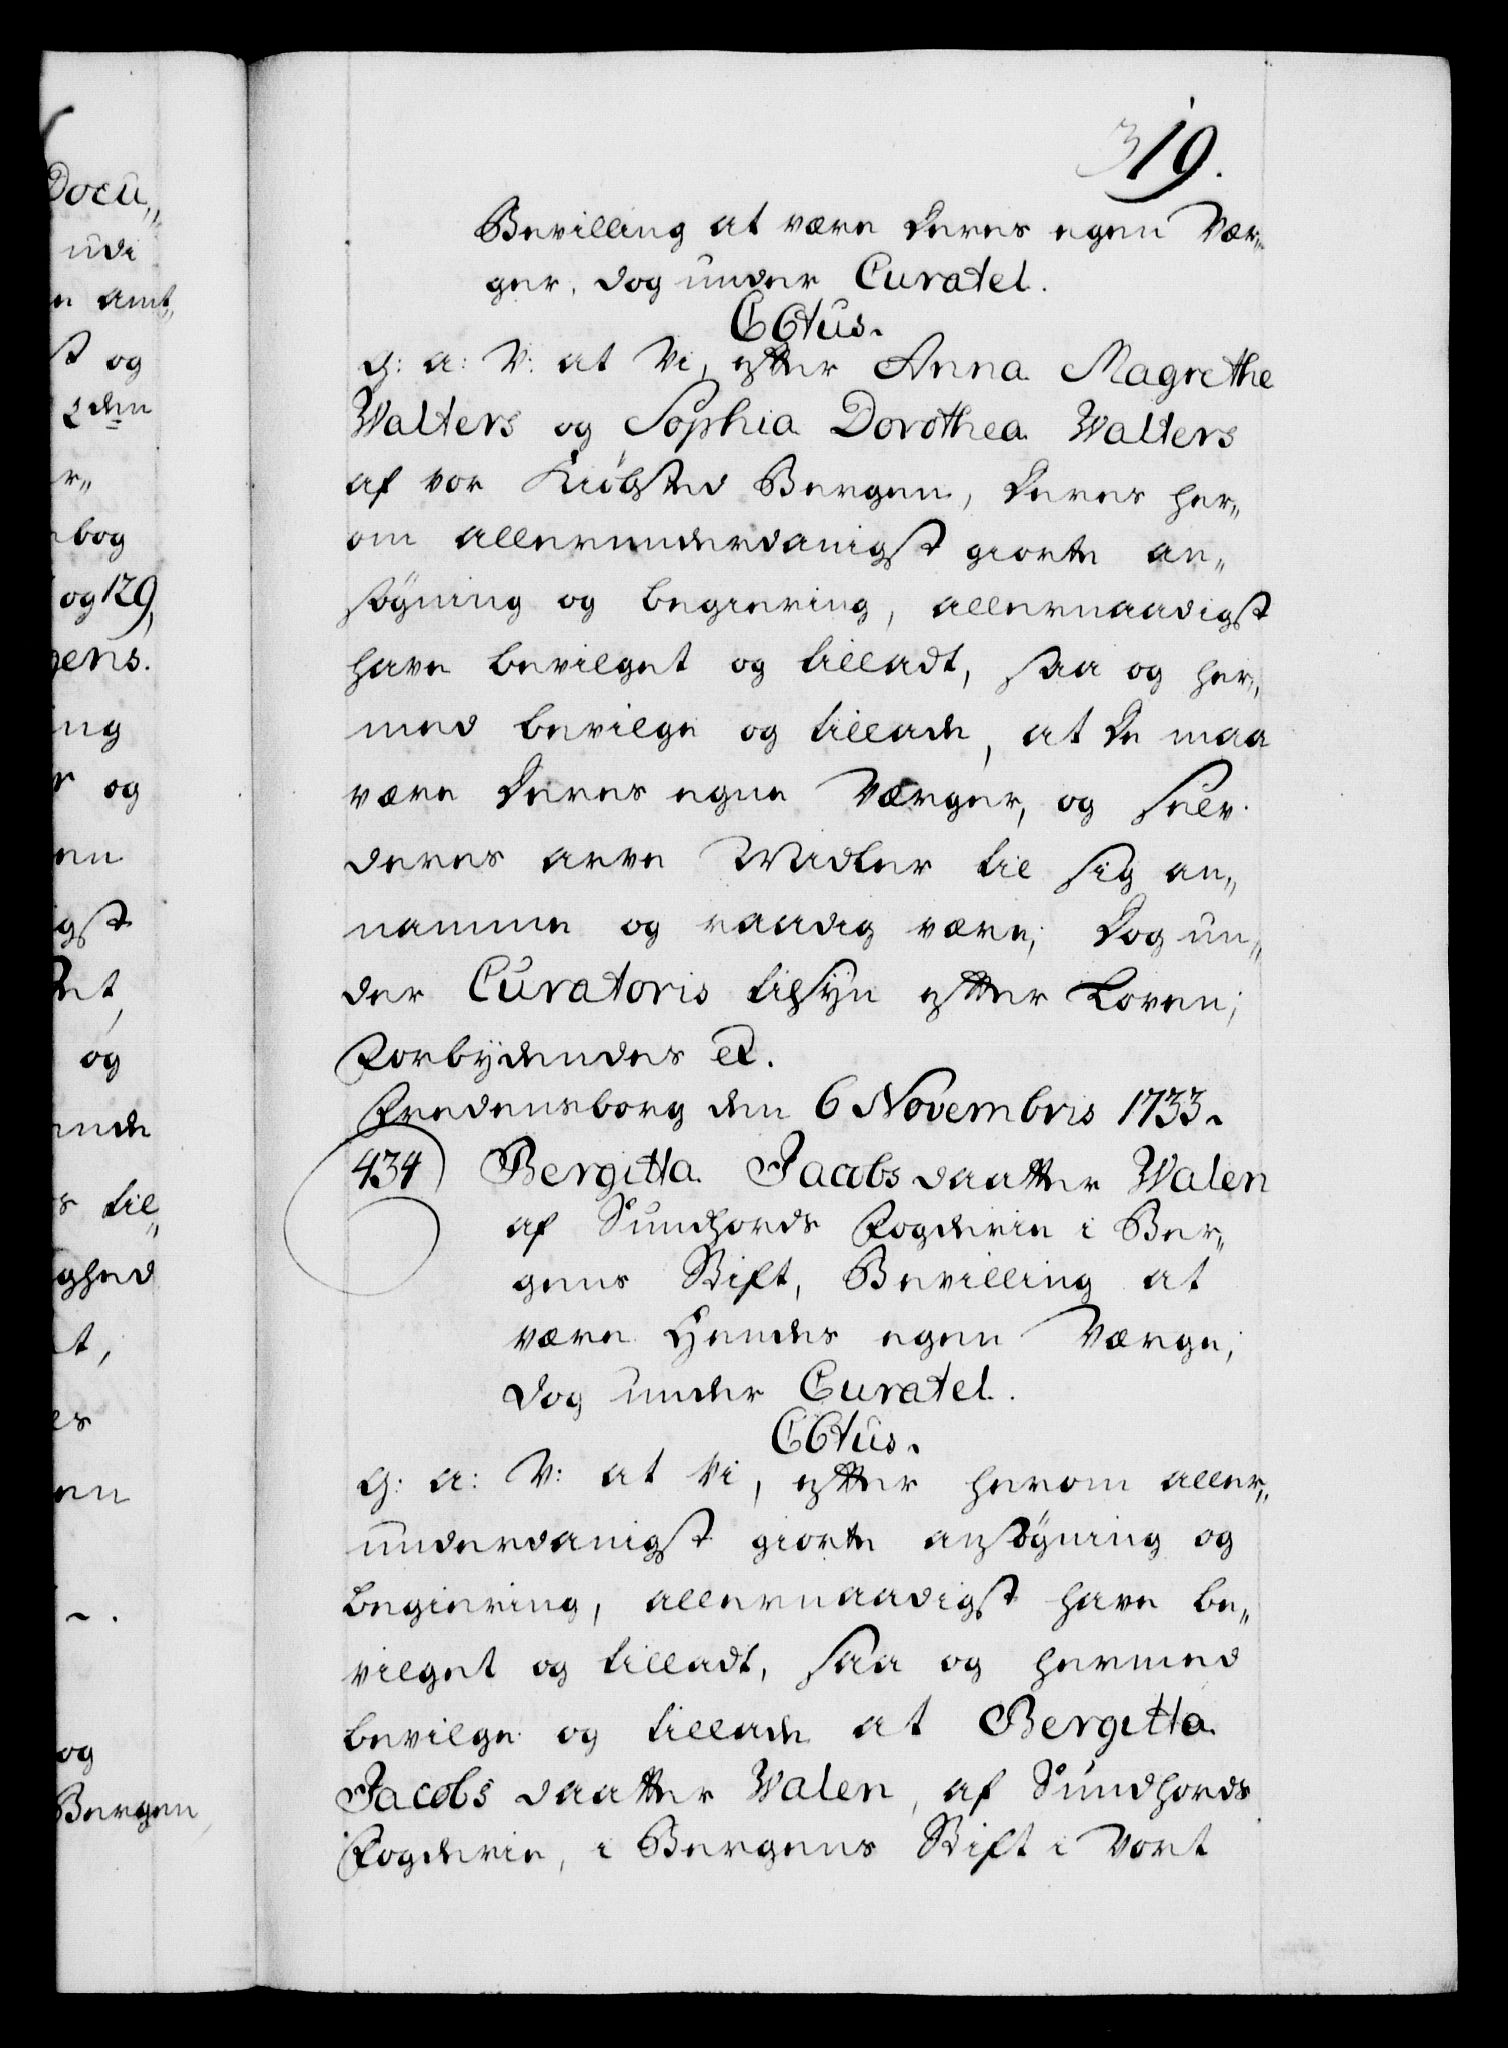 319.
Bevilling at være deres egen Vær„
ger, dog under Curatel.
C6tus.
G: a: V: at Vi, efter Anna Magrethe
Walters og Sophia Dorothea Walters
af vor Kiøbsted Bergen, deres her„
om allerunderdanigst giorte an„
søgning og begiering, allernaadigst
have bevilget og tilladt, saa og her„
med bevilge og tillade, at de maa
være deres egne Værger, og selv
deres arve Midler til sig an„
namme og raadig være; dog un„
der Curatoris tilsÿn efter Loven;
Forbÿdendes et.
Fredensborg den 6 Novembris 1733.
434) Bergitta Jacobs daatter Walen
af Sundhords Fogderie i Ber„
gens Stift, Bevilling at
være Hendes egen Værge,
dog under Curatel.
C6tus.
G: a: V: at Vi, efter herom aller„
underdanigst giorte ansøgning og
begiering, allernaadigst have be„
vilget og tilladt, saa og hermed
bevilge og tillade at Bergitta
Jacobs daatter Walen, af Sundhords
Fogderie, i Bergens Stift i Vort
Docu„
udi
amt,
og
2den
bog
og 129,
gens.
ing
og
en
igst
og
ende
til„
ghed
og
Bergen,